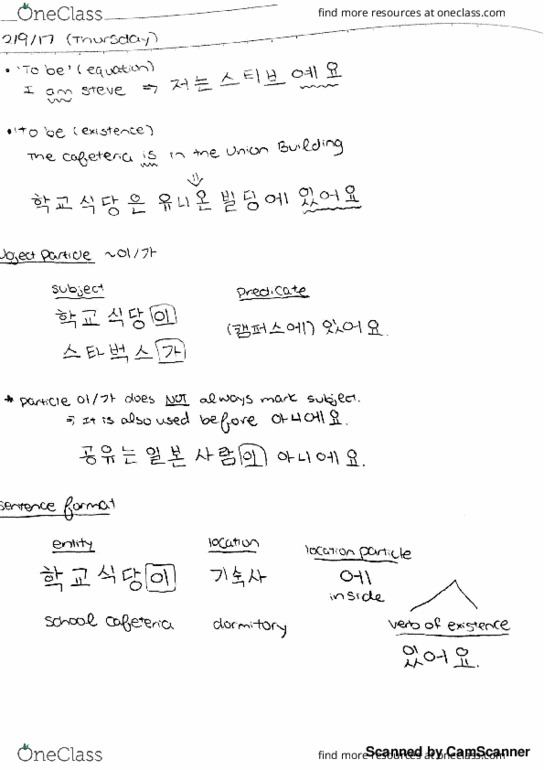 OneClass find more resources at oneclass.com
2/9/17 (Thursday)
• 'To be' (equation)
I am steve ⇒ 저는 스티브 예요
• 'to be (existence)
The cafeteria is in the Union Building
⇓
학교 식당은 유니온 빌딩에 있어요
ubject particle ~이/가
subject predicate
학교 식당이 (캠퍼스에) 있어요.
스타벅스가
* particle 이/가 does NOT always mark subject.
⇒ It is also used before 아니에요.
공유는 일본 사람이 아니에요.
sentence format
entity location location particle
학교 식당이 기숙사 에
inside
school cafeteria dormitory verb of existence
있어요.
OneClass find more resources at oneclass.com
Scanned by CamScanner